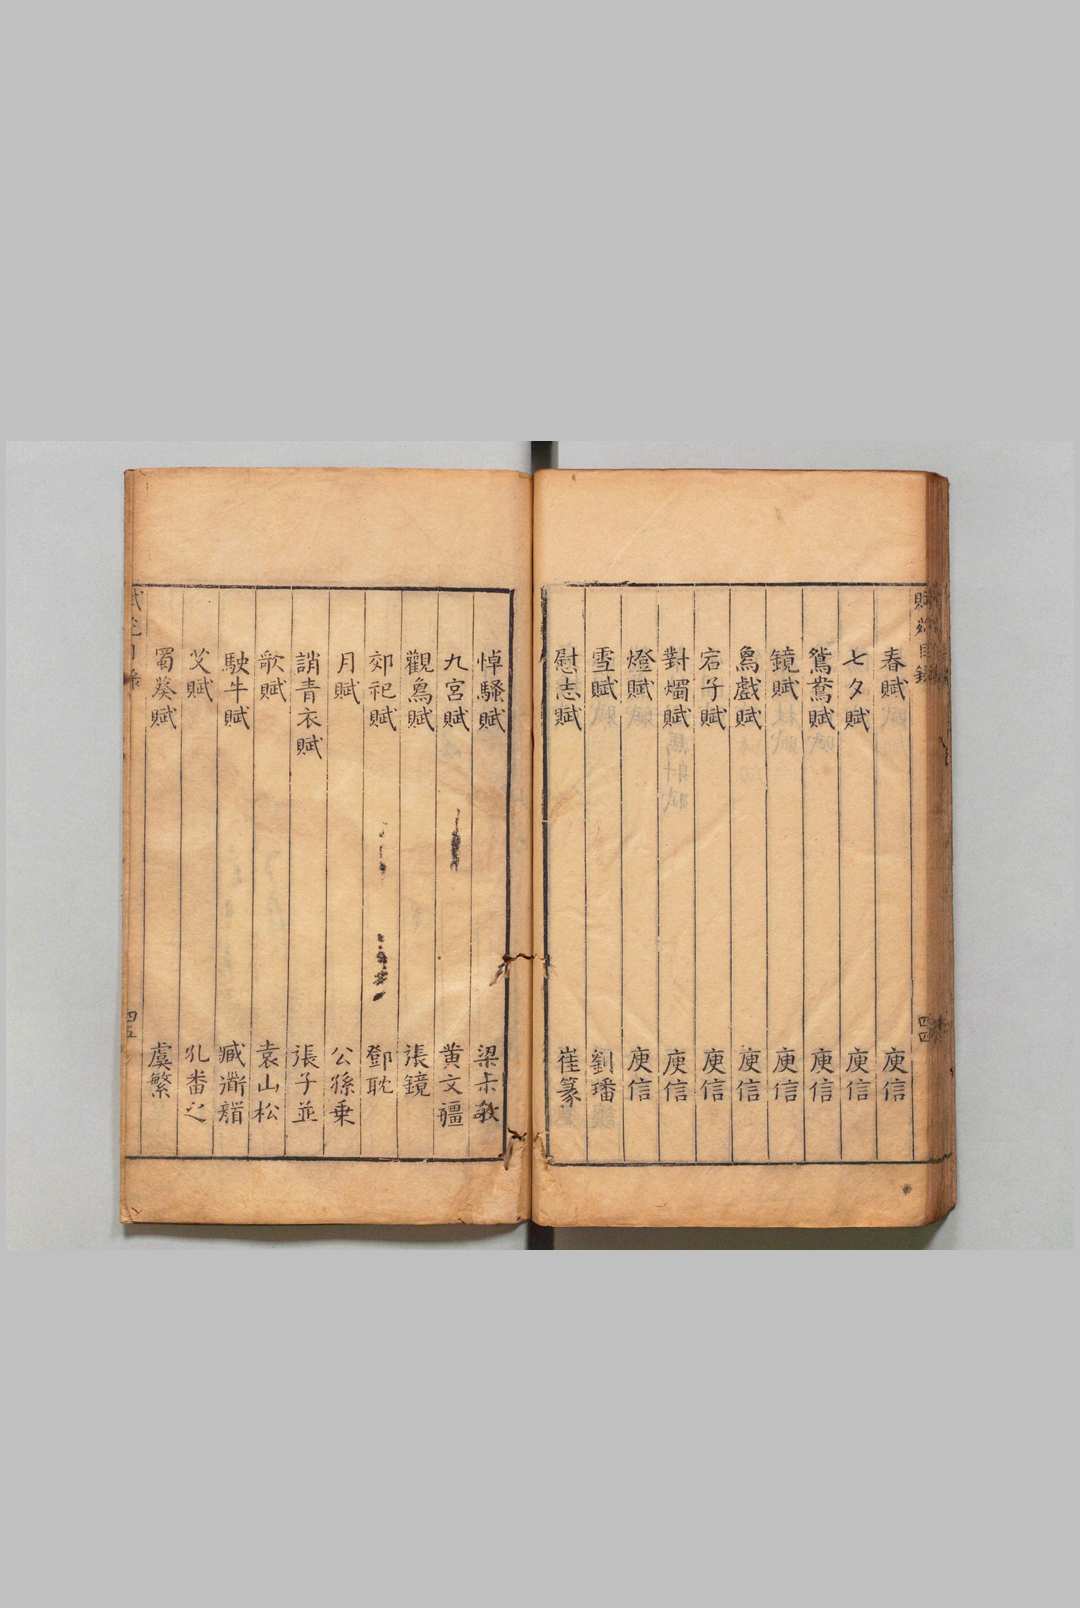 春賦 庾信
七夕賦 庾信
鴛鴦賦 庾信
鏡賦 庾信
鳥戲賦 庾信
宕子賦 庾信
對燭賦 庾信
燈賦 庾信
雪賦 劉璠
慰志賦 崔篆
賦苑目錄 四四
悼騷賦 梁未敏
九宮賦 黃文疆
觀鳥賦 張鏡
郊祀賦 鄧耽
月賦 公孫乗
誚青衣賦 張子並
歌賦 袁山松
駛牛賦 臧
艾賦 孔番之
蜀葵賦 虞繁
四五